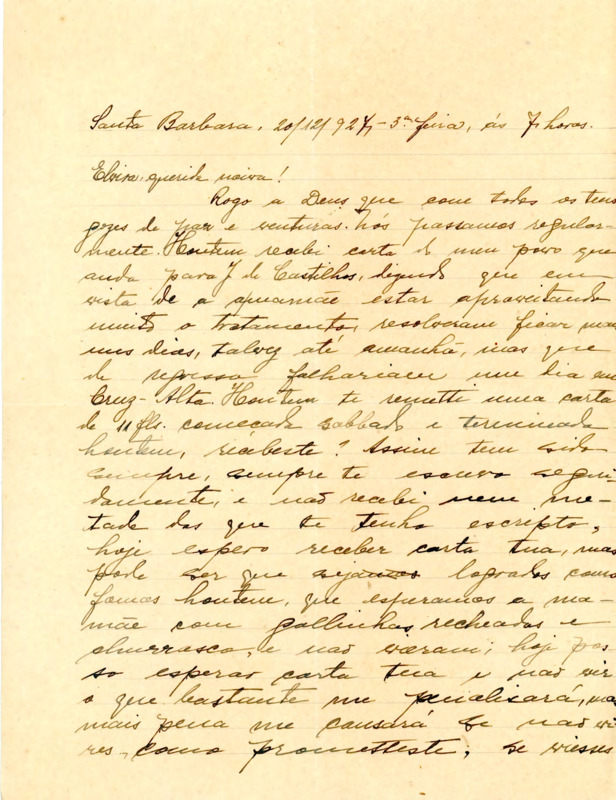 Santa Barbara, 20/12/927, - 3ª feira, ás 7 horas.
Elvira, querida noiva!
Rogo a Deus que com todos os teus
gozes de paz e venturas. Nós passamos regular-
mente. Hontem recebi carta do meu povo que
anda para J. de Castilhos, dizendo que em
vista de a mamãe estar aproveitando
muito o tratamento, resolveram ficar mais
uns dias, talvez até amanhã, mas que
de regresso falhariam um dia em
Cruz-Alta. Hontem te remetti uma carta
de 11 fls. começada sabbado e terminada
hontem, recebeste? Assim tem sido
sempre, sempre te escrevo segui-
damente, e não recebi nem me-
tade das que te tenho escripto,
hoje espero receber carta tua, mas
pode ser que sejamos logrados como
fomos hontem, que esperamos a ma-
mãe com gallinhas recheadas e
churrasco, e não vieram; hoje pos-
so esperar carta tua e não vir
o que bastante me penalisará, mas
mais pena me causará se não vi-
res, como prometteste, se viesses